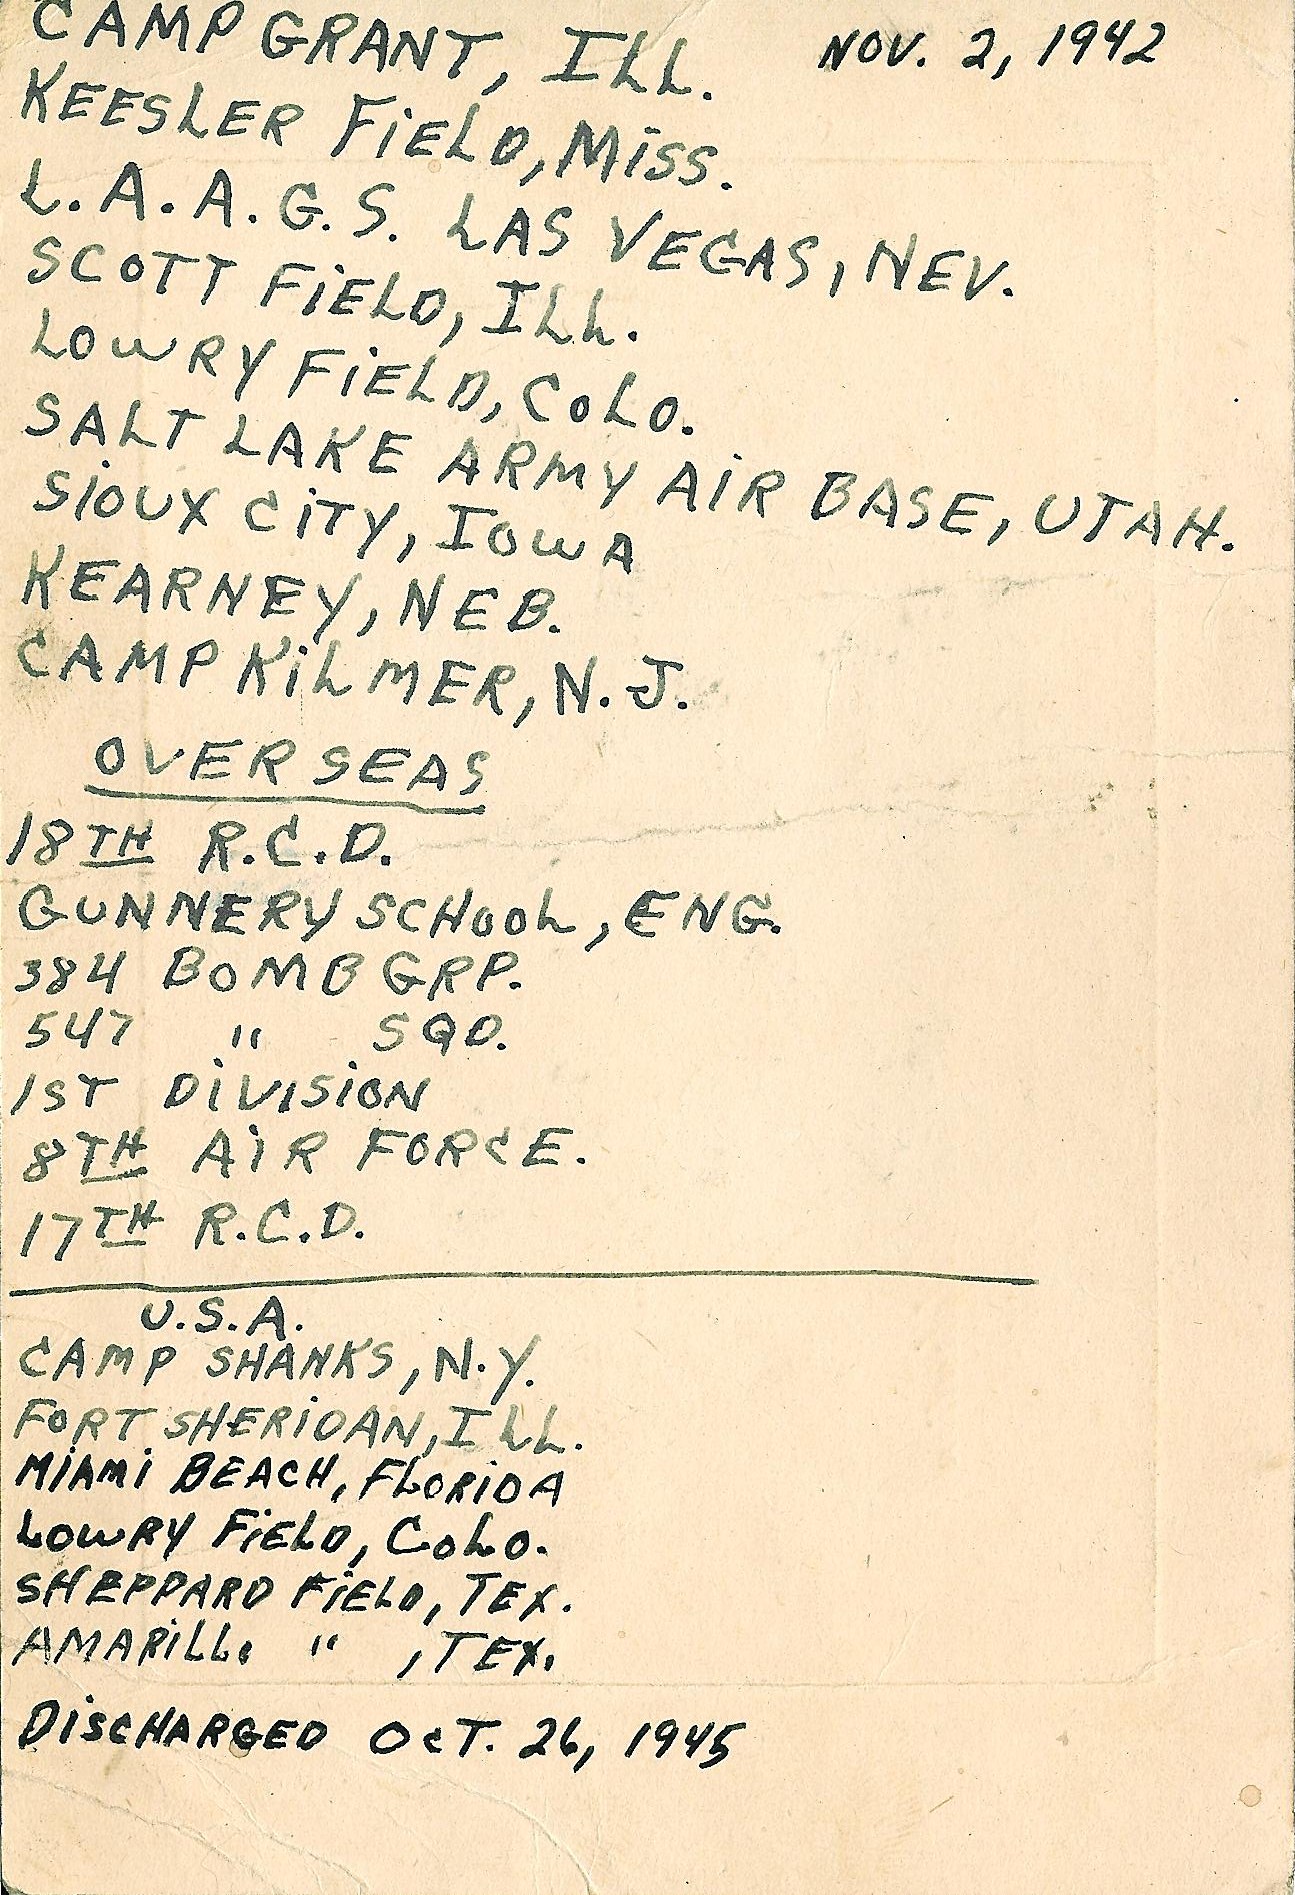 CAMP GRANT, ILL. NOV. 2, 1942
KEESLER FIELD, MISS.
L.A.A.G.S. LAS VEGAS, NEV.
SCOTT FIELD, ILL.
LOWRY FIELD, COLO.
SALT LAKE ARMY AIR BASE, UTAH.
SIOUX CITY, IOWA
KEARNEY, NEB.
CAMP KILMER, N.J.
OVERSEAS
18TH R.C.D.
GUNNERY SCHOOL, ENG.
384 BOMB GRP.
547 " SQD.
1ST DIVISION
8TH AIR FORCE.
17TH R.C.D.
U.S.A.
CAMP SHANKS, N.Y.
FORT SHERIDAN, ILL.
MIAMI BEACH, FLORIDA
LOWRY FIELD, COLO.
SHEPPARD FIELD, TEX.
AMARILLO " , TEX.
DISCHARGED OCT. 26, 1945